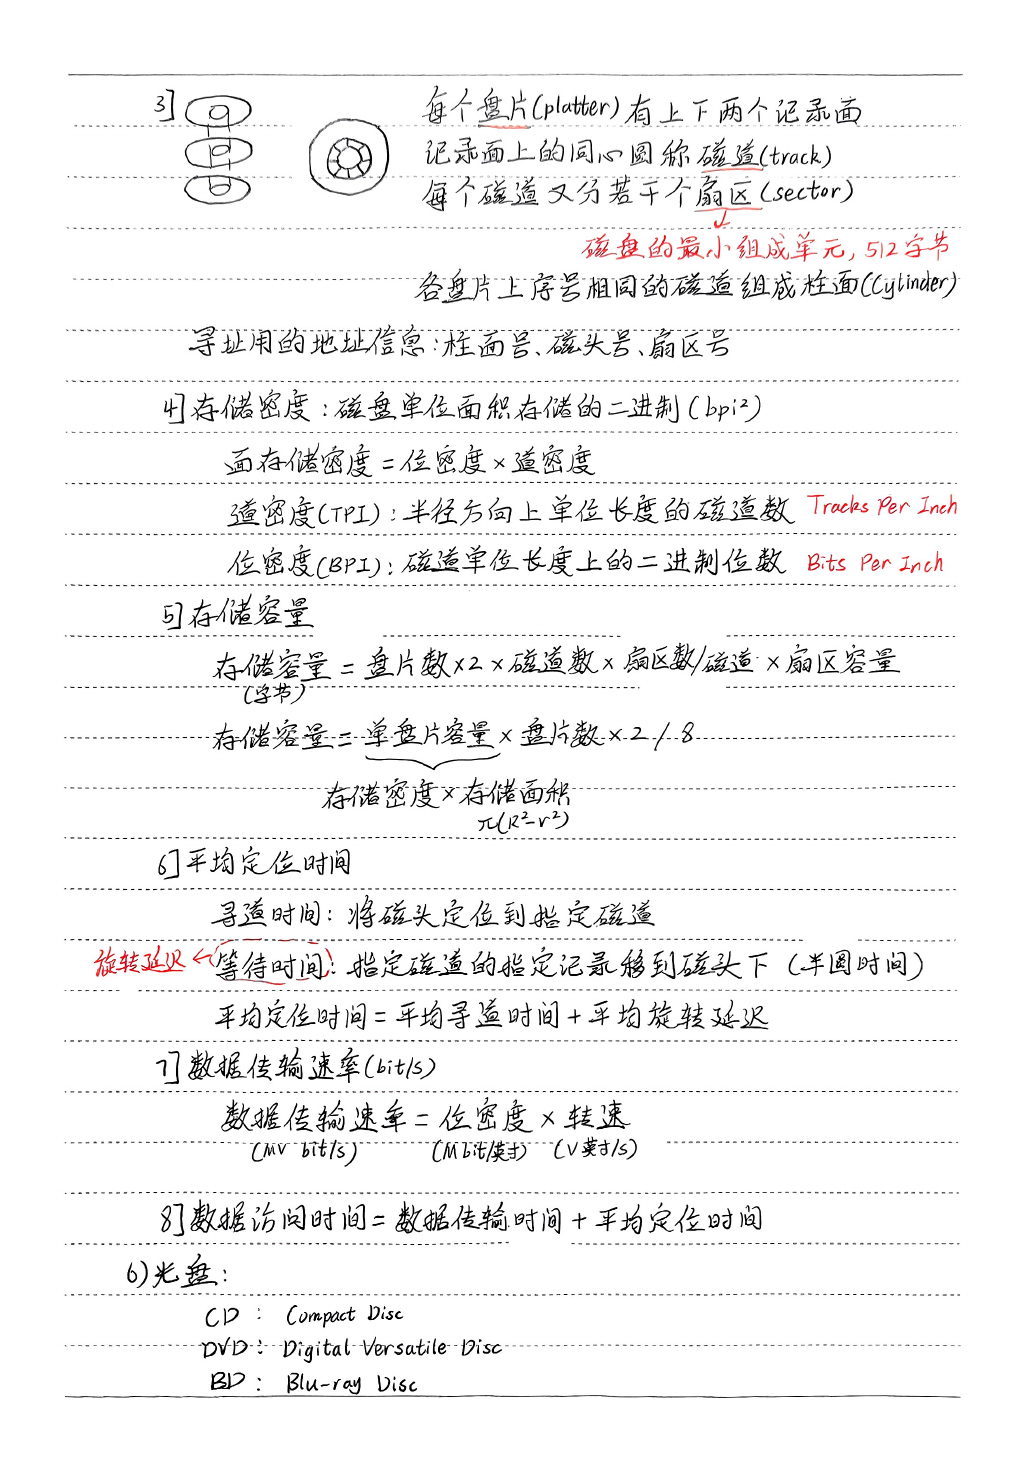 3] 每个盘片(platter)有上下两个记录面
记录面上的同心圆称磁道(track)
每个磁道又分若干个扇区(sector)
磁盘的最小组成单元, 512字节
各盘片上序号相同的磁道组成柱面(Cylinder)
寻址用的地址信息:柱面号、磁头号、扇区号
4]存储密度:磁盘单位面积存储的二进制(bpi²)
面存储密度=位密度×道密度
道密度(TPI):半径方向上单位长度的磁道数 Tracks Per Inch
位密度(BPI):磁道单位长度上的二进制位数 Bits Per Inch
5]存储容量
存储容量=盘片数×2×磁道数×扇区数/磁道×扇区容量
(字节)
存储容量=单盘片容量×盘片数×2/8
存储密度×存储面积
π(R²-r²)
6]平均定位时间
寻道时间:将磁头定位到指定磁道
旋转延迟←(等待时间):指定磁道的指定记录移到磁头下(半圆时间)
平均定位时间=平均寻道时间+平均旋转延迟
7]数据传输速率(bit/s)
数据传输速率=位密度×转速
(MV bit/s) (M bit/英寸) (V英寸/s)
8]数据访问时间=数据传输时间+平均定位时间
6)光盘:
CD: Compact Disc
DVD: Digital Versatile Disc
BD: Blu-ray Disc